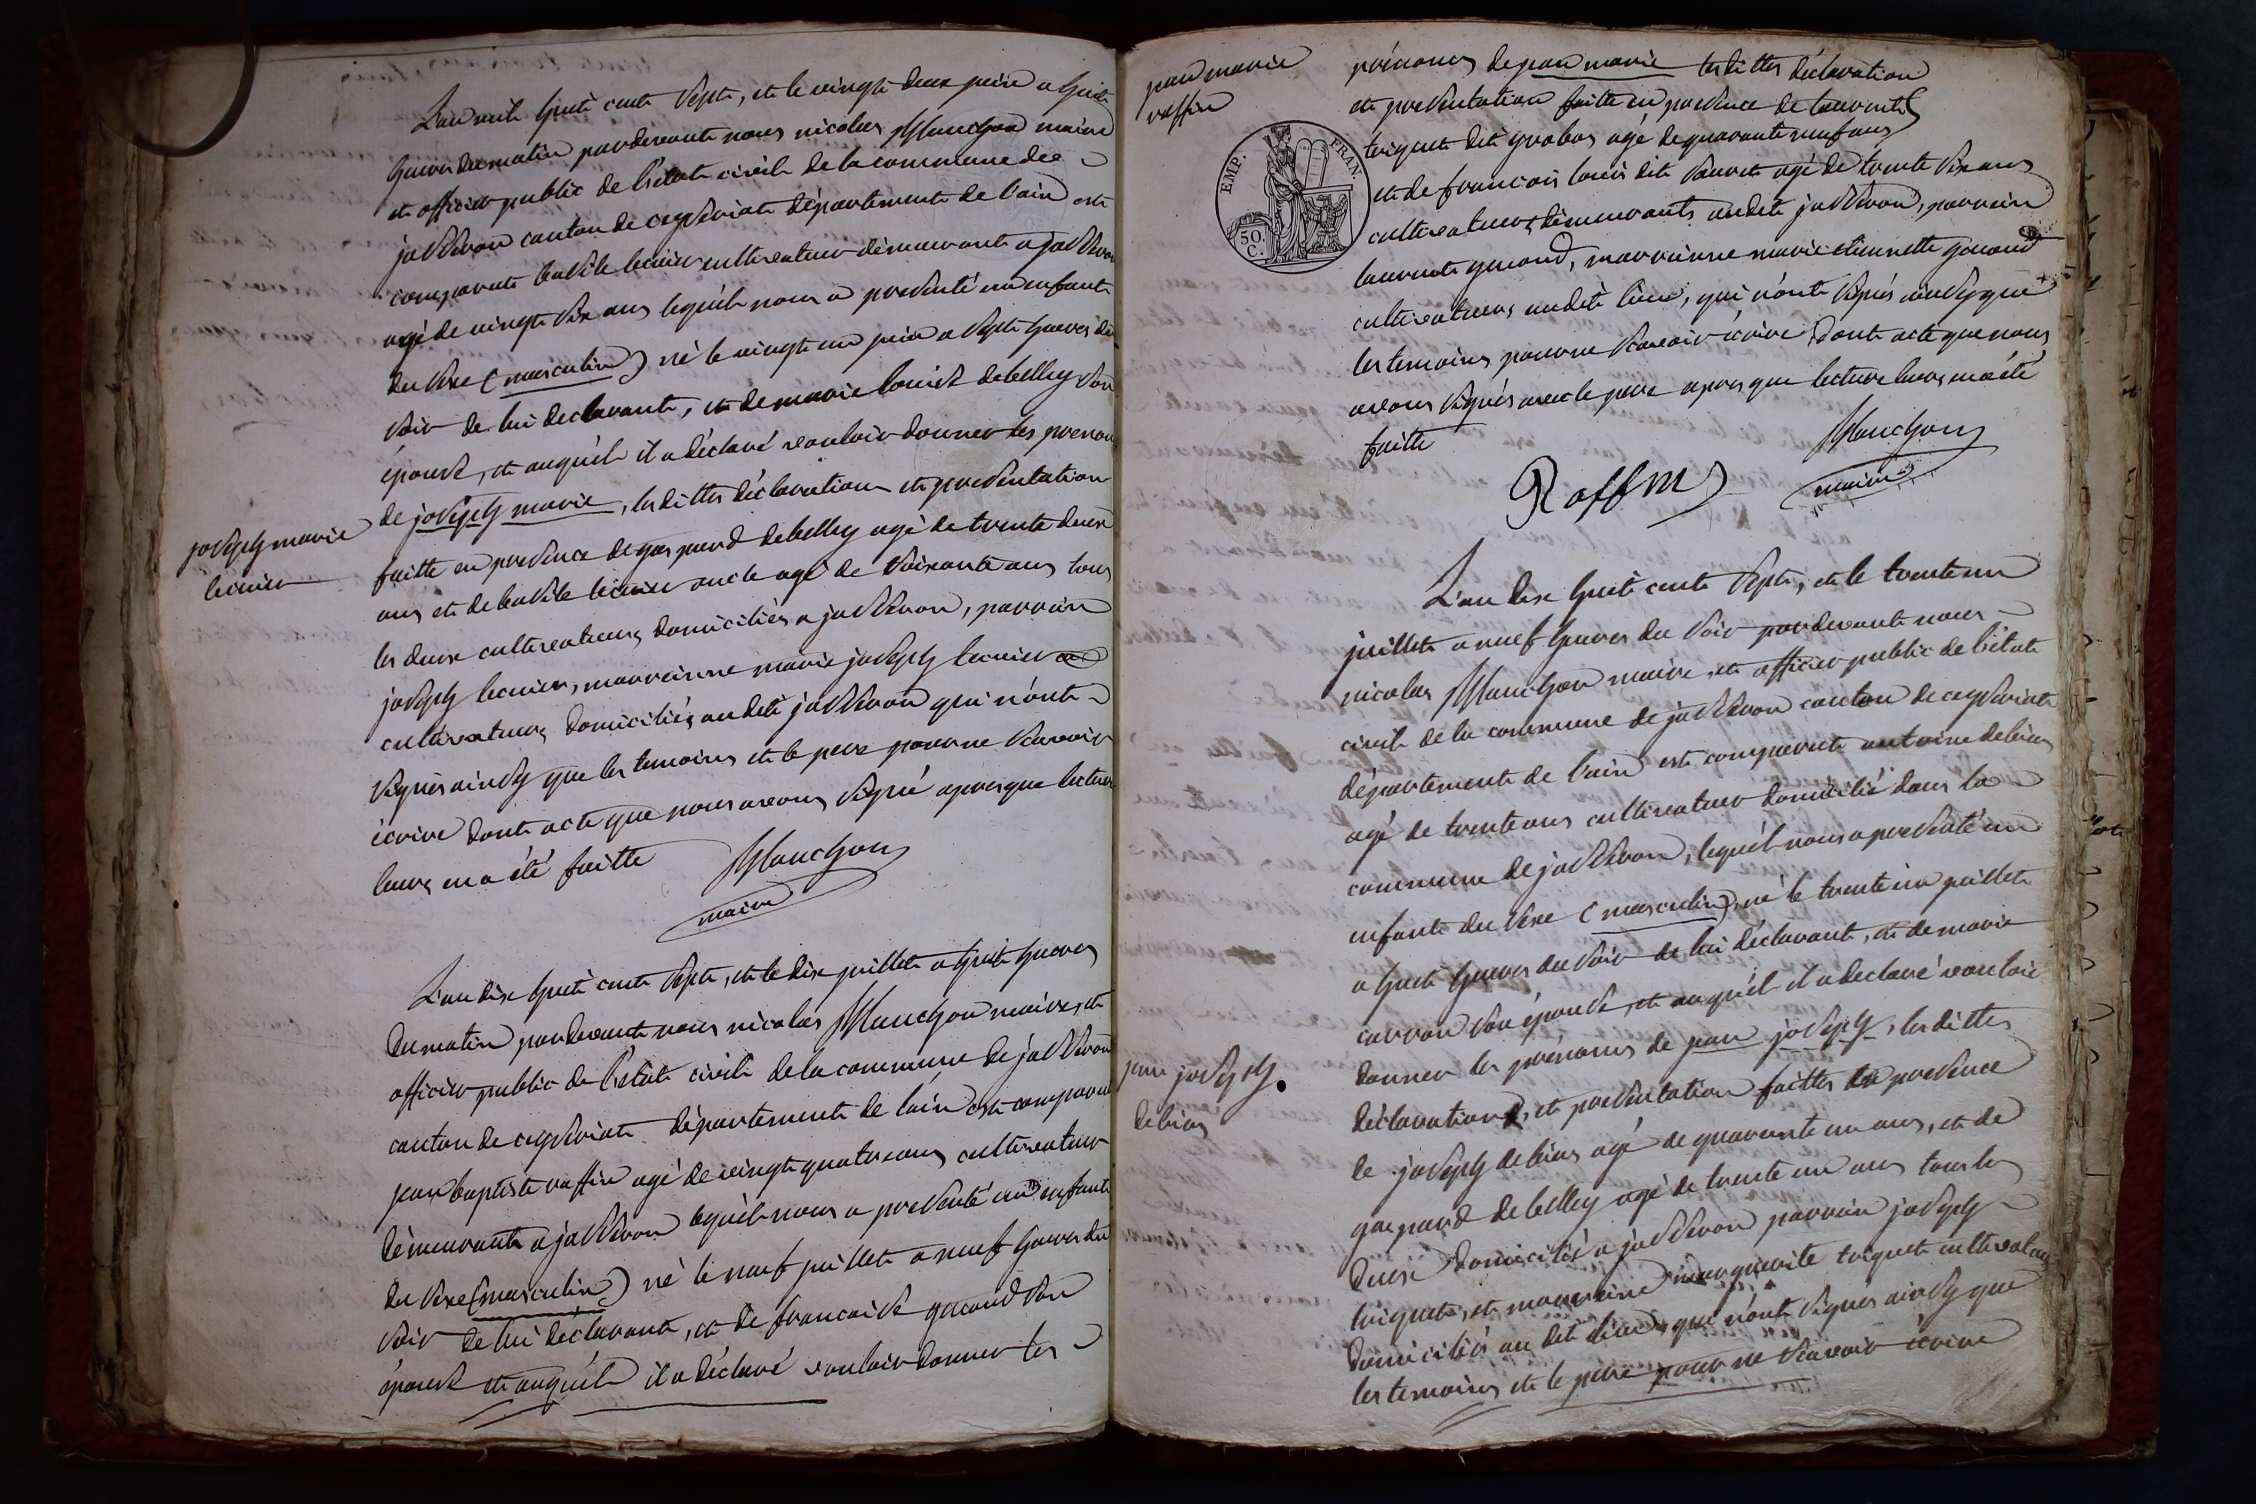 L'an mil huit cent sept, et le vingt deux juin a huit
heures du matin pardevant nous nicolas Manchon maire
et officier public de l'etat civil de la commune de
jasseron canton de ceyseriat département de l'ain est
comparut basile lecuier cultivateur démeurant a jasseron
agé de vingt six ans lequél nous a presenté un enfant
du sexe (masculin) né le vingt un juin a sept heures du
soir de lui declarant, et de marie louise debelley son
épouse, et auquél il a déclaré vouloir donner les prenoms
de joseph marie, lesdittes déclaration et presentation
joseph marie
lecuier
faitte en presence de gaspard debelley agé de trente deux
ans et de basile lecuier oncle agé de soixante ans tous
les deux cultivateurs domiciliés a jasseron, parrain
joseph lecuier, marrainne marie joseph lecuier
cultivateurs domiciliés audit jasseron qui n'ont
signés ainsy que les temoins et le pere pour ne scavoir
écrire dont acte que nous avons signé apres que lecture
leurs en a été faitte
Manchon
maire
L'an dix huit cent sept, et le dix juillet a huit heures
du matin pardevant nous nicolas Manchon maire, et
officier public de l'état civil de la commune de jasseron
canton de ceyseriat département de l'ain est comparut
jean baptiste raffin agé de vingt quatre ans cultivateur
démeurant a jasseron lequél nous a presenté un enfant
du sexe (masculin) né le neuf juillet a neuf heures du
soir de lui déclarant, et de francoise gacond son
épouse et auquél il a déclaré vouloir donner les
jean marie
raffin
EMP. FRAN.
50.
C.
prénoms de jean marie lesdittes déclaration
et presentation faitte en presence de laurent
triquet dit grobas agé de quarante neuf ans
et de francois louis dit sauret agé de trente six ans
cultivateurs démeurants audit jasseron, parrain
laurent gacond, marrainne marie etiennette gacond
cultivateurs audit lieu, qui n'ont signés ainsy que
les temoins pour ne scavoir écrire dont acte que nous
avons signés avec le pere apres que lecture leurs en a été
faitte
Manchon
maire
Raffin
L'an dix huit cent sept, et le trente un
juillet a neuf heures du soir pardevant nous
nicolas Manchon maire, et officier public de l'état
civil de la commune de jasseron canton de ceyseriat
département de l'ain est comparut antoine debias
agé de trente ans cultivateur domicilié dans la
commune de jasseron, lequél nous a presenté un
enfant du sexe (masculin), né le trente un juillet
a huit heures du soir de lui déclarant, et de marie
carron son épouse, et auquél il a declaré vouloir
donner les prénoms de jean joseph, lesdittes
jean joseph
debias
déclarations, et presentation faittes en presence
de joseph debias agé de quarante un ans, et de
gaspard debelley agé de trente un ans tous les
deux domiciliés a jasseron parrain joseph
triquet, et marrainne marguerite triquet cultivateurs
domiciliés au dit lieu, qui n'ont signés ainsy que
les temoins et le pere pour ne scavoir écrire